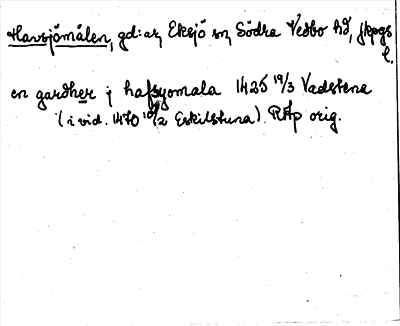 Havsjömålen, gd: az Eksjö sn, Södra Vedbo hd, Jkpgs
l.
en gardher j hafsyomala 1425 19/3 Vadstena
(i vid. 1470 10/2 Eskilstuna) RAp orig.